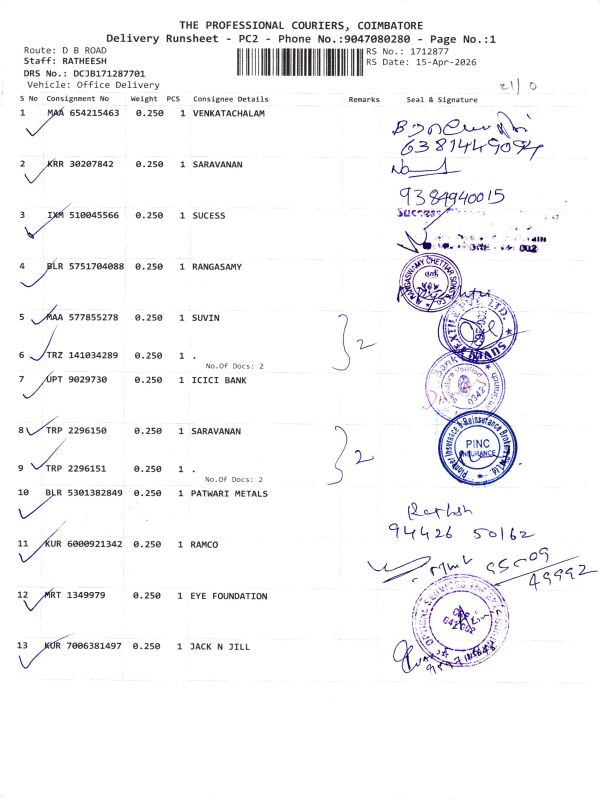 THE PROFESSIONAL COURIERS, COIMBATORE
Delivery Runsheet - PC2 - Phone No.:9047080280 - Page No.:1
Route: D B ROAD
RS No.: 1712877
Staff: RATHEESH
RS Date: 15-Apr-2026
DRS No.: DCJB171287701
Vehicle: Office Delivery
S No Consignment No Weight PCS Consignee Details Remarks Seal & Signature
1 MAA 654215463 0.250 1 VENKATACHALAM
6381449094
2 KRR 30207842 0.250 1 SARAVANAN
9384940015
3 IXM 510045566 0.250 1 SUCESS
4 BLR 5751704088 0.250 1 RANGASAMY
5 MAA 577855278 0.250 1 SUVIN
2
6 TRZ 141034289 0.250 1 .
No.Of Docs: 2
7 UPT 9029730 0.250 1 ICICI BANK
8 TRP 2296150 0.250 1 SARAVANAN
PINC
INSURANCE
2
9 TRP 2296151 0.250 1 .
No.Of Docs: 2
10 BLR 5301382849 0.250 1 PATWARI METALS
94426 50162
11 KUR 6000921342 0.250 1 RAMCO
95009
49992
12 MRT 1349979 0.250 1 EYE FOUNDATION
13 KUR 7006381497 0.250 1 JACK N JILL